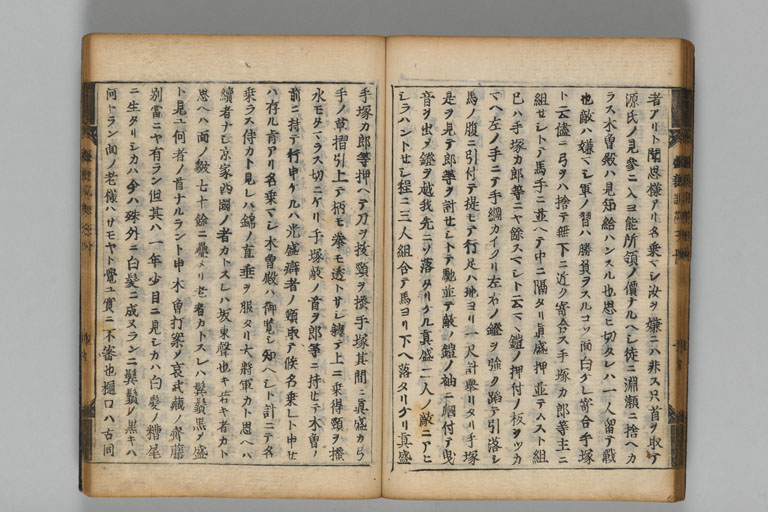 者アリト聞思様アリ名乗マシ汝ヲ嫌ニハ非ス只首ヲ取テ
源氏ノ見参ニ入ヨ能所領ノ價ナルヘシ徒ニ淵瀬ニ捨ヘカ
ラス木曽殿ハ見知給ハンスル也思ヒ切タレハ一人留テ戦
也敵ハ嫌マシ軍ノ習ハ勝負ヲスルコソ面白ケレ寄合手塚
ト云儘ニ弓ヲハ捨テ無下ニ近ク寄合ス手塚カ郎等主ニ
組セシトテ馬手ニ並ヘテ中ニ隔タリ真盛押並テムスト組
已ハ手塚カ郎等ニヤ餘スマシト云テ鎧ノ押付ノ板ヲツカ
マヘ左ノ手ニテ手綱カイクリ左右ノ鐙ヲ強ク蹈テ引落シ
馬ノ腹ニ引付テ提モテ行足ハ地ヨリ一尺計擧リタリ手塚
是ヲ見テ郎等ヲ討セシトテ馳並テ敵ノ鎧ノ袖ニ付テ曳
音ヲ出シ鐙ヲ越我先ニソ落タリケル真盛二人ノ敵ニアヒ
シラハントセシ程ニ三人組合テ馬ヨリ下ヘ落タリケリ真盛
手塚カ郎等押ヘテ刀ヲ抜頸ヲ掻手塚其間ニ真盛カ弓
手ノ草摺引上テ柄モ拳モ透トサシ軈テ上ニ乗得頸ヲ掻
水モタマラス切ニケリ手塚敵ノ首ヲ郎等ニ持セテ木曽ノ
前ニ持テ行申ケルハ光盛癖者ノ頸取テ候名乗レト申セ
ハ存ル旨アリ名乗マシ木曽殿ハ御覧シ知ヘシト計ニテ名
乗ラス侍カト見レハ錦ノ直垂ヲ服タリ大將軍カト思ヘハ
續者ナシ京家西國ノ者カトスレハ坂東聲也キ若キ者カト
思ヘハ面ノ皺七十餘ニ疊メリ老者カトスレハ鬢鬚黒ク盛
ト見ユ何者ノ首ナルラント申木曽打案ソ哀武蔵ノ齊藤
別當ニヤ有ラン但其ハ一年少目ニ見シカハ白髪ノ糟尾
ニ生タリシカハ今ハ殊外ニ白髪ニ成ヌランニ鬢鬚ノ黒キハ
何トラン面ノ老様ハサモヤト覺ユ實ニ不審也樋口ハ古同